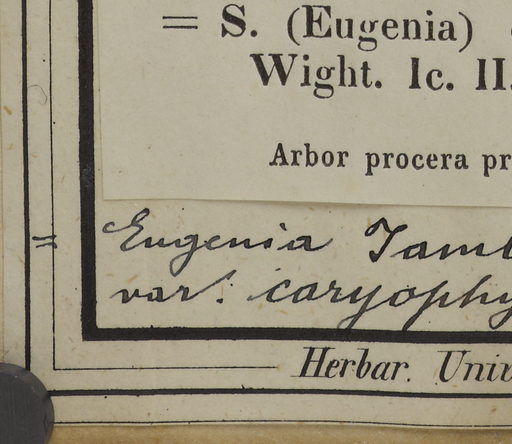 = S. (Eugenia)
Wight. Ic. II.
Arbor procera pr
= Eugenia Jamb
var. caryophy
Herbar. Univ